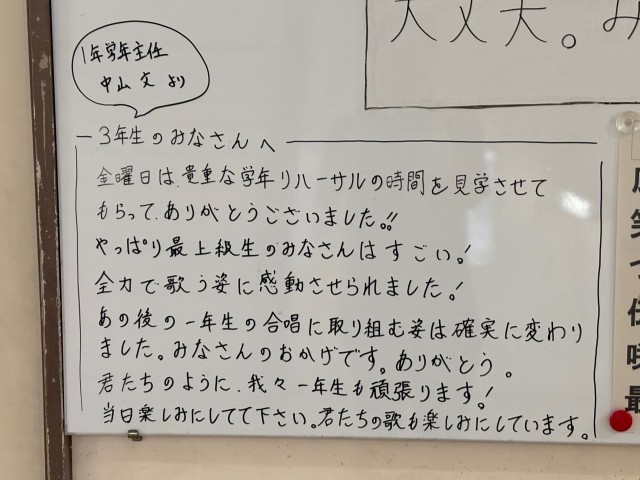 大丈夫。み
1年学年主任
中山 文 より
3年生のみなさんへ
金曜日は、貴重な学年リハーサルの時間を見学させて
もらって、ありがとうございました!!
やっぱり最上級生のみなさんはすごい!
全力で歌う姿に感動させられました!
あの後の一年生の合唱に取り組む姿は確実に変わり
ました。みなさんのおかげです。ありがとう。
君たちのように、我々一年生も頑張ります!
当日楽しみにしてて下さい。君たちの歌も楽しみにしています。
笑
つ
最